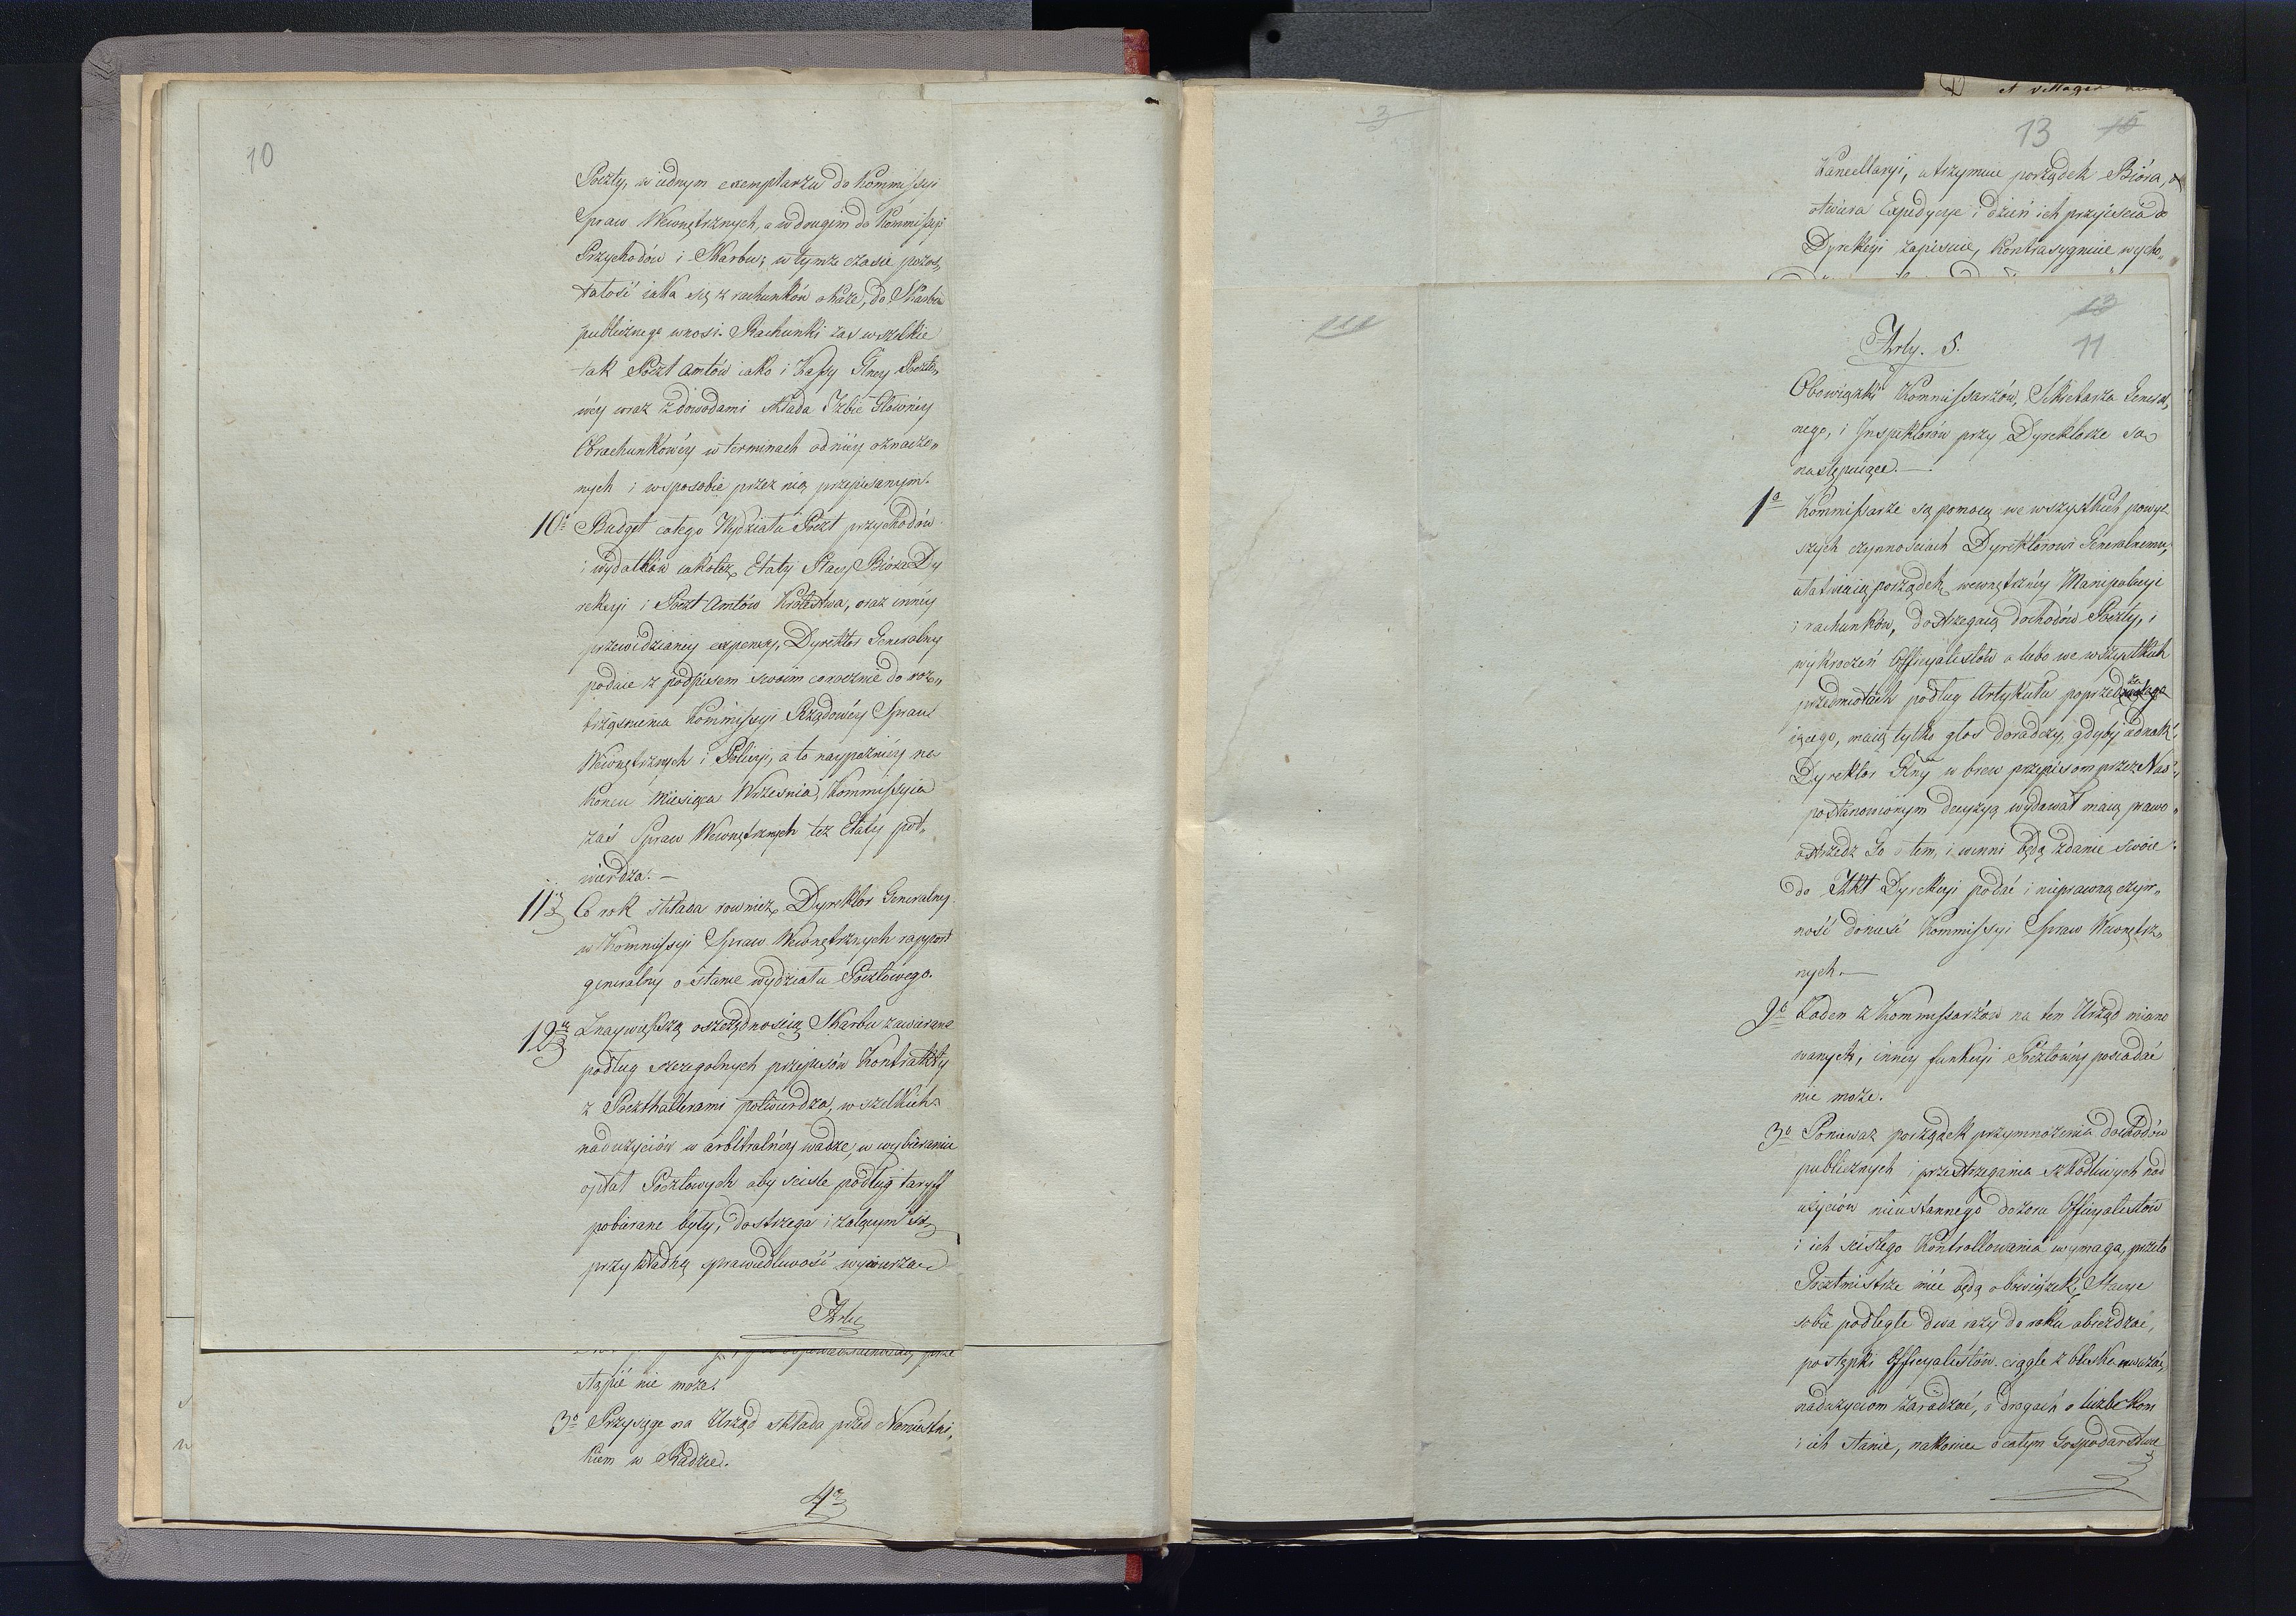 10
Poczty, w iednym exemplarzu do Kommissyi
Spraw Wewnętrznych, a w drugim do Kommissyi
Przychodów i Skarbu; w tymże czasie pozos„
tałość iaka się z rachunków okaże, do Skarbu
publicznego wnosi. Rachunki zaś wszelkie
tak Poczt Amtów iako i Kassy Głney Poczto„
wéy wraz z dowodami składa Izbie Głownéy
Obrachunkowéy w terminach od niéy oznaczo„
nych i w sposobie przez nią przepisanym.
10o Budget całego Wydziału Poczt przychodów
i wydatków iakoteż Etaty Płacy Bióra Dy
rekcyi i Poczt Amtów Królestwa, oraz innéy
przewidzianey expensy, Dyrektor Generalny
podaie z podpisem swoim corocznie do roz„
trząśnienia Kommissyi Rządowéy Spraw
Wewnętrznych i Policyi, a to naypoźniéy na
Końcu Miesiąca Września, Kommissyia
zaś Spraw Wewnętrznych też Etaty pot„
wierdza.—
11o Co rok składa rownież Dyrektor Generalny
w Kommissyi Spraw Wewnętrznych rapport
generalny o stanie wydziału Pocztowego.
12o Z naywiększą oszczędnością Skarbu zawierane
podług szczegolnych przepisów Kontrakty
z Poczthalterami potwierdza, wszelkich
nadużyciów w arbitralnéy wadze, w wybieraniu
opłat Pocztowych aby ściśle podług taryff
pobierane były, dostrzega i załącym się
przykładną sprawiedliwość wymierza
Arty
stąpić nie może.
3o Przysięgę na Urząd składa przed Namiestni„
kiem w Radzie.
4o
3
13 15
Kancellaryi, utrzymuie porządek Bióra,
otwiera Expedycye i dzień ich przyiścia do
Dyrekcyi zapisuie, Kontrasygnuie wycho„
13
11
Arty. 5.
Obowiązki Kommissarzów, Sekretarza General„
nego, i Inspektorów przy Dyrektorze są
następuiące.—
1o Kommissarze są pomocą we wszystkich powyż
szych czynnościach Dyrektorowi Generalnemu,
ułatwiaią porządek wewnętrznéy Manipulacyi
i rachunków, dostrzegaią dochodów Poczty, i
wykroczeń Officyalistów a lubo we wszystkich
przedmiotach podług Artykułu poprzedza
iącego, maią tylko głos doradczy, gdyby iednak
Dyrektor Głny w brew przepisom przez Nas
postanowionym decyzyą wydawał maią prawo
ostrzedz Go o tem, i winni będą zdanie swoie
do Akt Dyrekcyi podać i nieprawną czyn„
ność donieść Kommissyi Spraw Wewnętrz„
nych.—
2o Żaden z Kommissarzów na ten Urząd miano
wanych, innéy funkcyi Pocztowéy posiadać
nie może.
3o Ponieważ porządek przymnożenia dochodów
publicznych i przestrzegania szkodliwych nad
użyciów nieustannego dozoru Officyalistów
i ich ścisłego Kontrollowania wymaga, przeto
Pocztmistrze mieć będą obowiązek, Stacye
sobie podległe dwa razy do roku obieżdzać,
postępki Officyalistów ciągle z bliska uważać,
nadużyciom zaradzać, o drogach o liczbe Koni
i ich stanie, nakoniec o całym Gospodarstwie